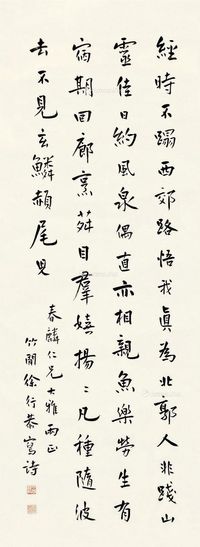 經時不蹋西郊路悟我真為北郭人非踐山
靈佳日約風泉偶直亦相親魚樂勞生有
宿期回廊烹茗目羣嬉揚揚凡種隨波
去不見玄鱗赬尾兒
春麟仁兄大雅兩正
竹閒徐行恭寫詩